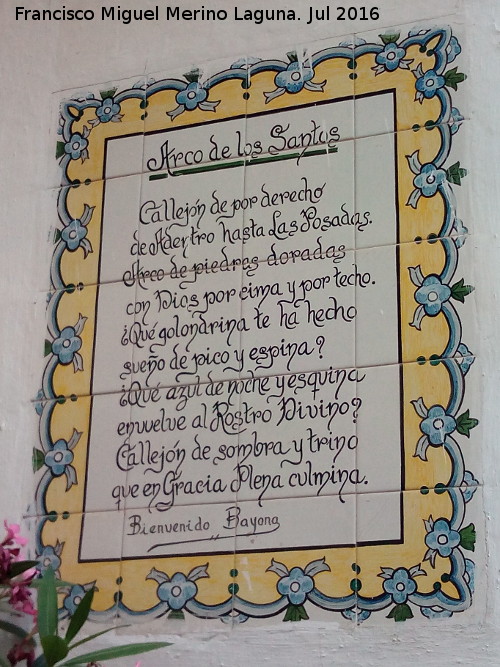 Francisco Miguel Merino Laguna. Jul 2016
Arco de los Santos
Callejón de por derecho
de Adentro hasta Las Posadas.
Arco de piedras doradas
con Dios por cima y por techo.
¿Qué golondrina te ha hecho
sueño de pico y espina?
¿Qué azul de noche y esquina
envuelve al Rostro Divino?
Callejón de sombra y trino
que en Gracia Plena culmina.
Bienvenido Bayona